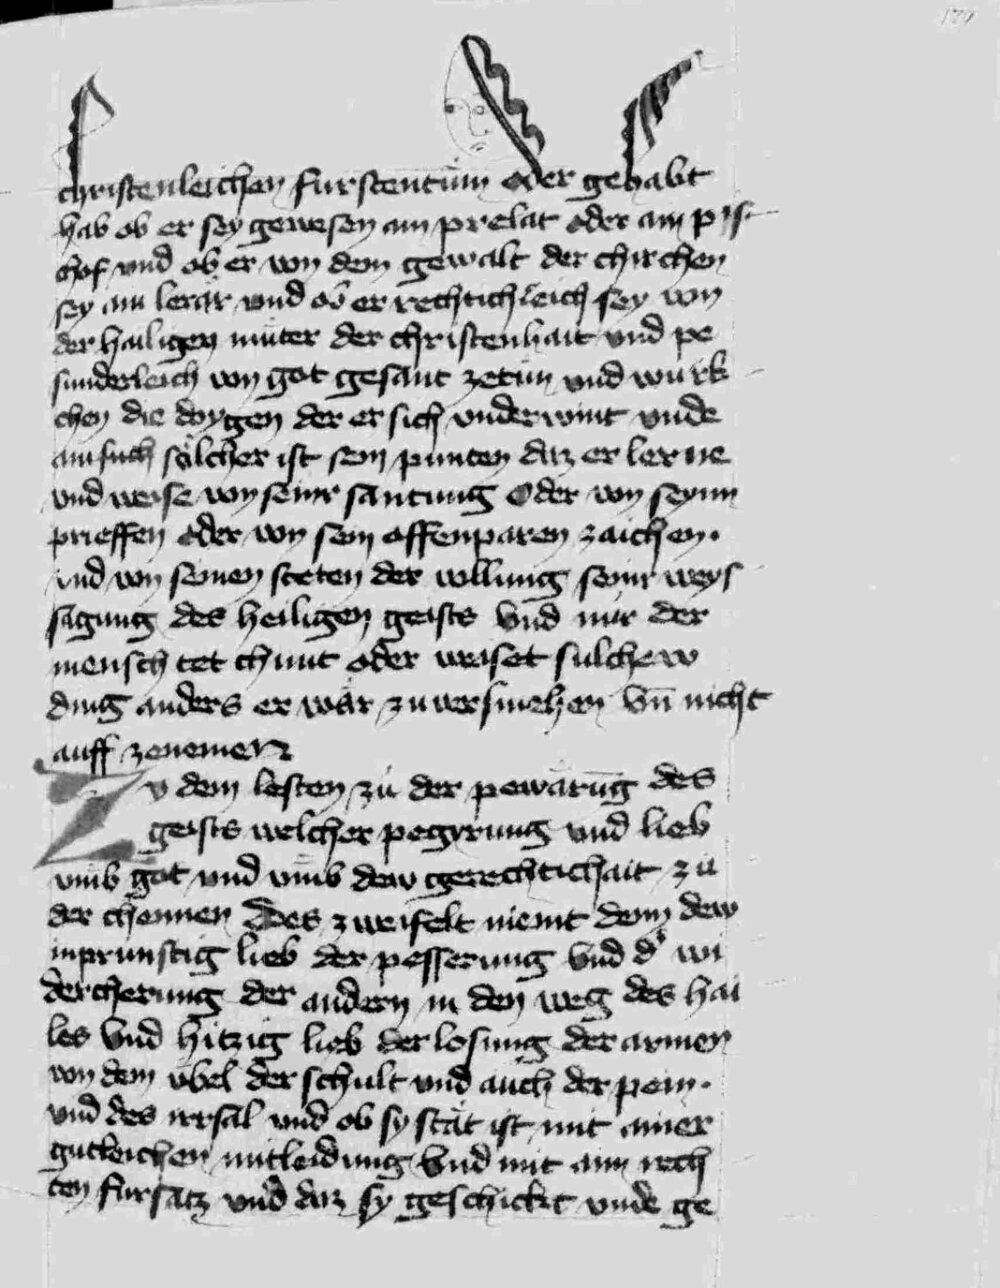 christenleichen furstentům oder gehabt
hab ob er sey gewesen ain prelat oder ain pis
chof vnd ob er von dem gewalt der chirchen
sey ain lerär vnd ob er rechtichleich sey von
der hailigen můter der christenhait vnd pe
sunderleich von got gesant zetůn vnd wurk
chen die doygen der er sich vnderwint vnde
ainfuch sölcher ist sein punten daz er lerne
vnd weise von seinr santung Oder von seynn
prieffen oder von sein offenparen zaichen.
vnd von seinen steten der vollung seinr weys
sagung des heiligen geists Vnd nür der
mensch tet chunt oder weiset sulchew
ding anders er wär zuuersmehen Vn̄ nicht
auff zenemen
Zv dem lesten zů der pewärūg des
geists welcher pegyrung vnd lieb
vmb got vnd vmb dew gerechtichait zů
der chennen Des zweifelt niemt denn dew
inprunstig lieb der pesserung Vnd d' wi
dercherung der andern in den weg des hai
les Vnd hitzig lieb der losung der armen
von dem übel der schult vnd auch der pein.
vnd des irrsal vnd ob sy stät ist mit ainer
gutleichen mitleidung Vnd mit aim rech
ten fursatz vnd daz sy geschickt vnde ge